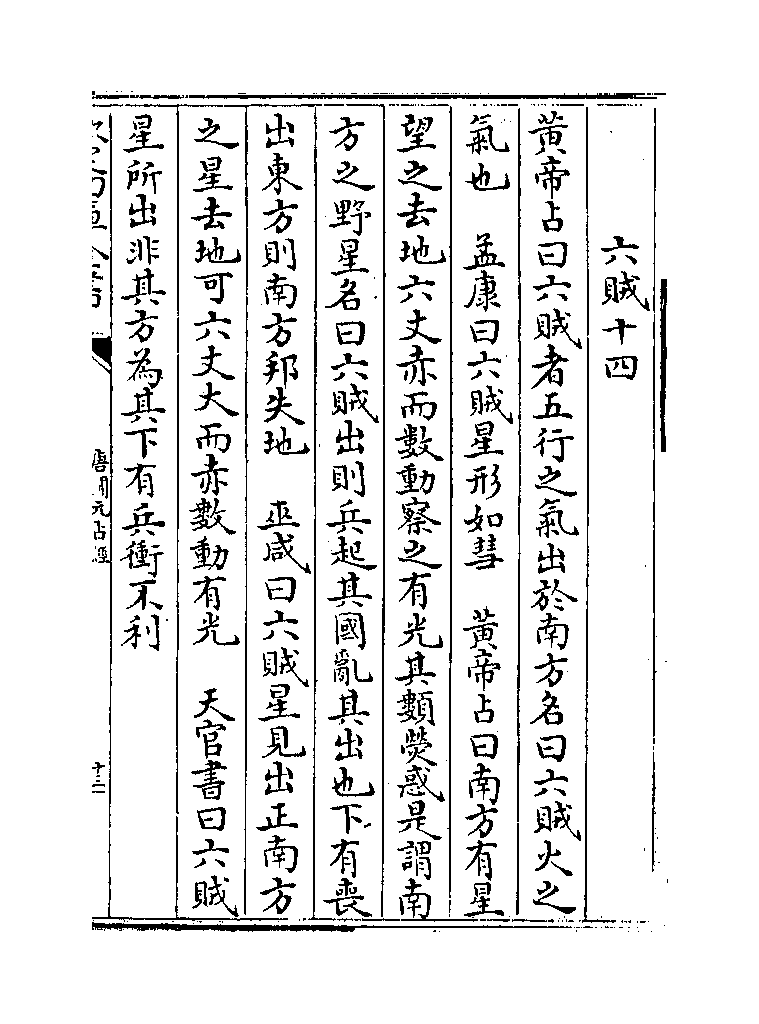 六賊十四
黃帝占曰六賊者五行之氣出於南方名曰六賊火之
氣也　孟康曰六賊星形如彗　黃帝占曰南方有星
望之去地六丈赤而數動察之有光其類熒惑是謂南
方之野星名曰六賊出則兵起其國亂其出也下有喪
出東方則南方邦失地　巫咸曰六賊星見出正南方
之星去地可六丈大而赤數動有光　天官書曰六賊
星所出非其方為其下有兵衝不利
唐開元占經
十三